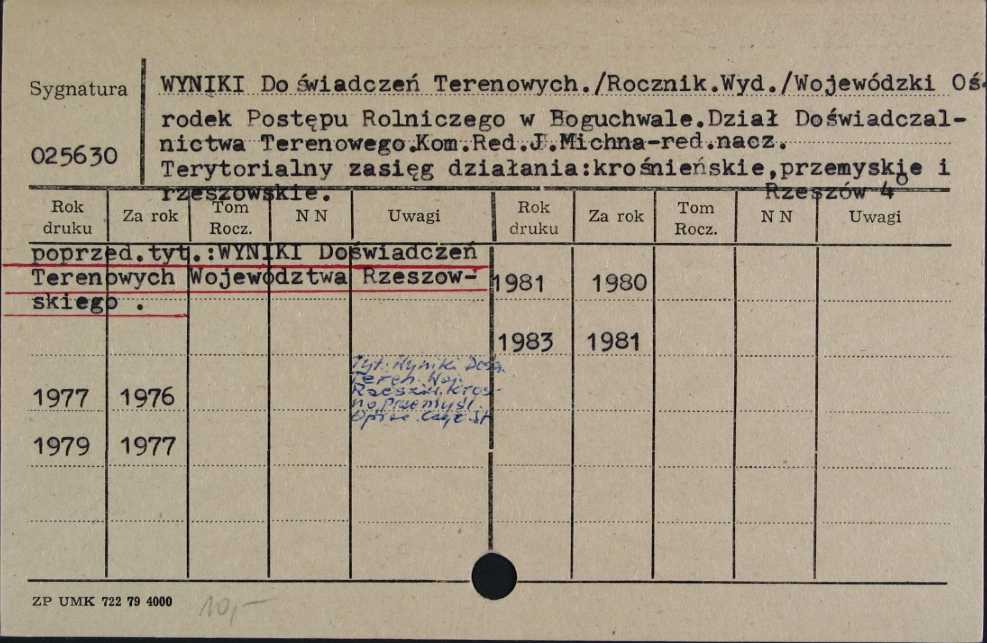 Sygnatura
025630
WYNIKI Doświadczeń Terenowych./Rocznik.Wyd./Wojewódzki Oś-
rodek Postępu Rolniczego w Boguchwale.Dział Doświadczal-
nictwa Terenowego.Kom.Red.J.Michna-red.nacz.
Terytorialny zasięg działania:krośnieńskie,przemyskie i
rzeszowskie. Rzeszów 4°
Rok druku Za rok Tom Rocz. N N Uwagi Rok druku Za rok Tom Rocz. N N Uwagi
poprzed.tyt.:WYNIKI Doświadczeń
Terenowych Województwa Rzeszow-
skiego .
1981 1980
1983 1981
Tyt. Wyniki Dośw.
Teren. Woj.
Rzeszów. Kros-
no Przemyśl.
1977 1976
1979 1977
ZP UMK 722 79 4000
10,-